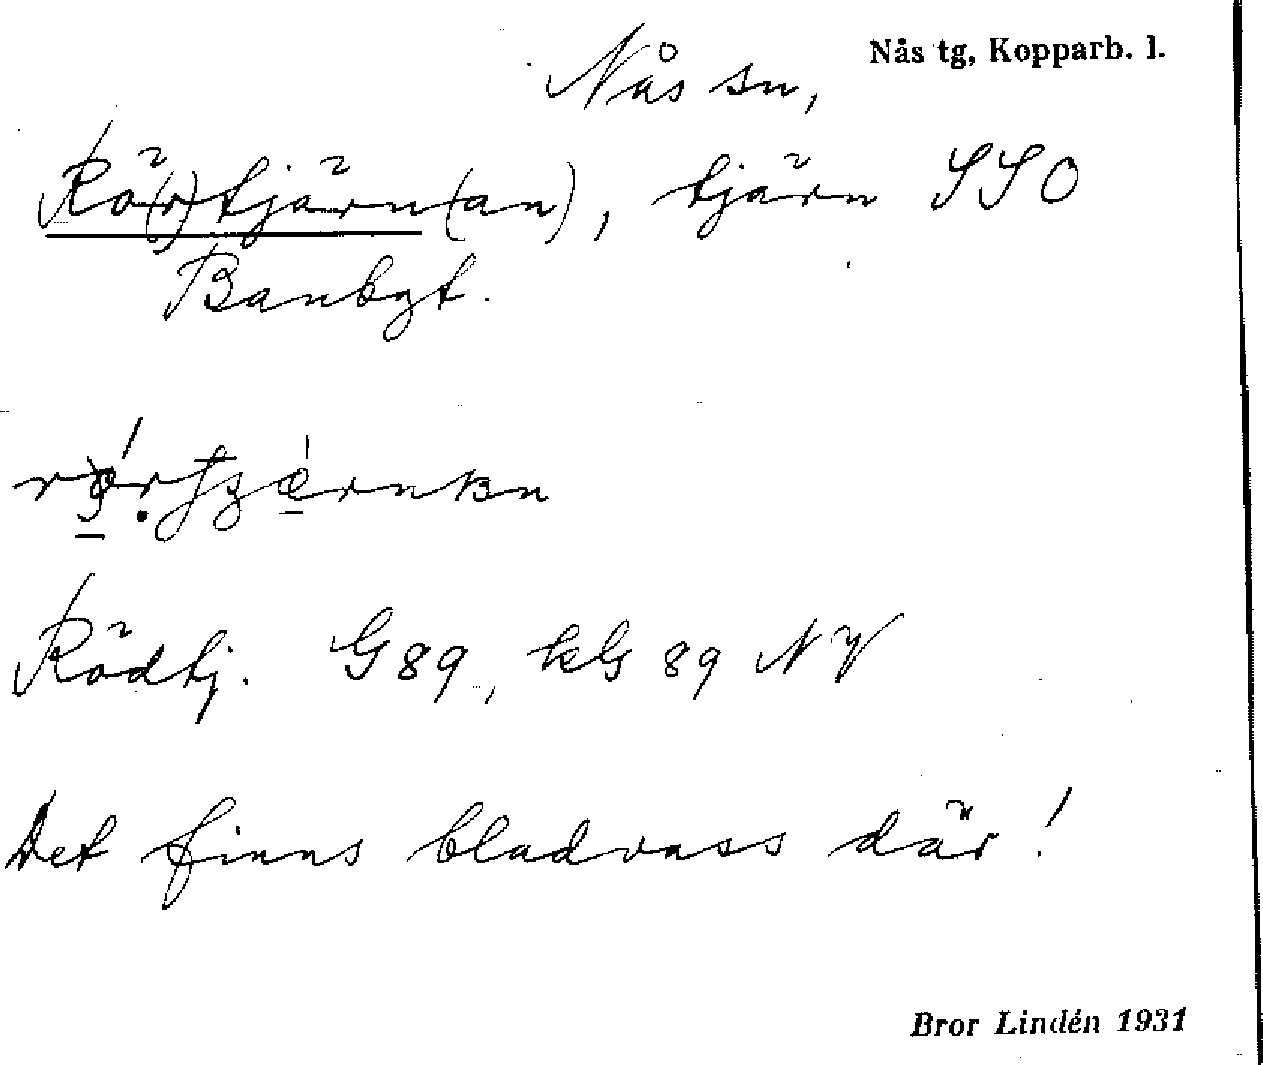 Nås tg, Kopparb. l.
Nås sn,
Rö(r)tjärn(an), tjärn SSO
Banbgt.
Rödtj. G 89, kG 89 NV
Det finns bladvass där!
Bror Lindén 1931